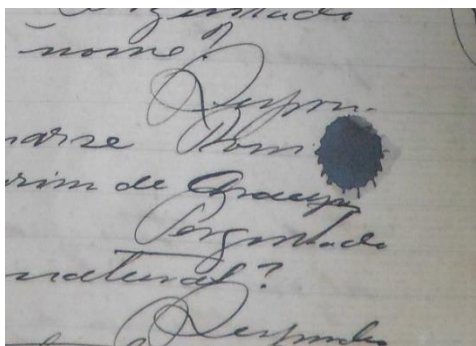 nome?
Respon
narse Rom
rim de Araujo
Perguntado
natural?
Respondeo